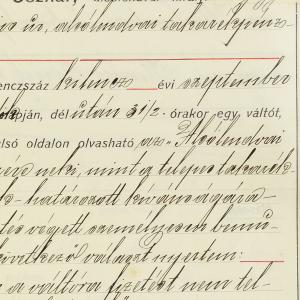 is úr, alsólendvai takarékpénz-
enczszáz kilencz évi szeptember
napján, dél után 3 1/2 órakor egy váltót,
első oldalon olvasható az „Alsólendvai
neki, mint a telepes takarék-
határozott kivánságára
végett személyesen bemu-
következő választ nyertem:
a váltóra fizetést nem tel-